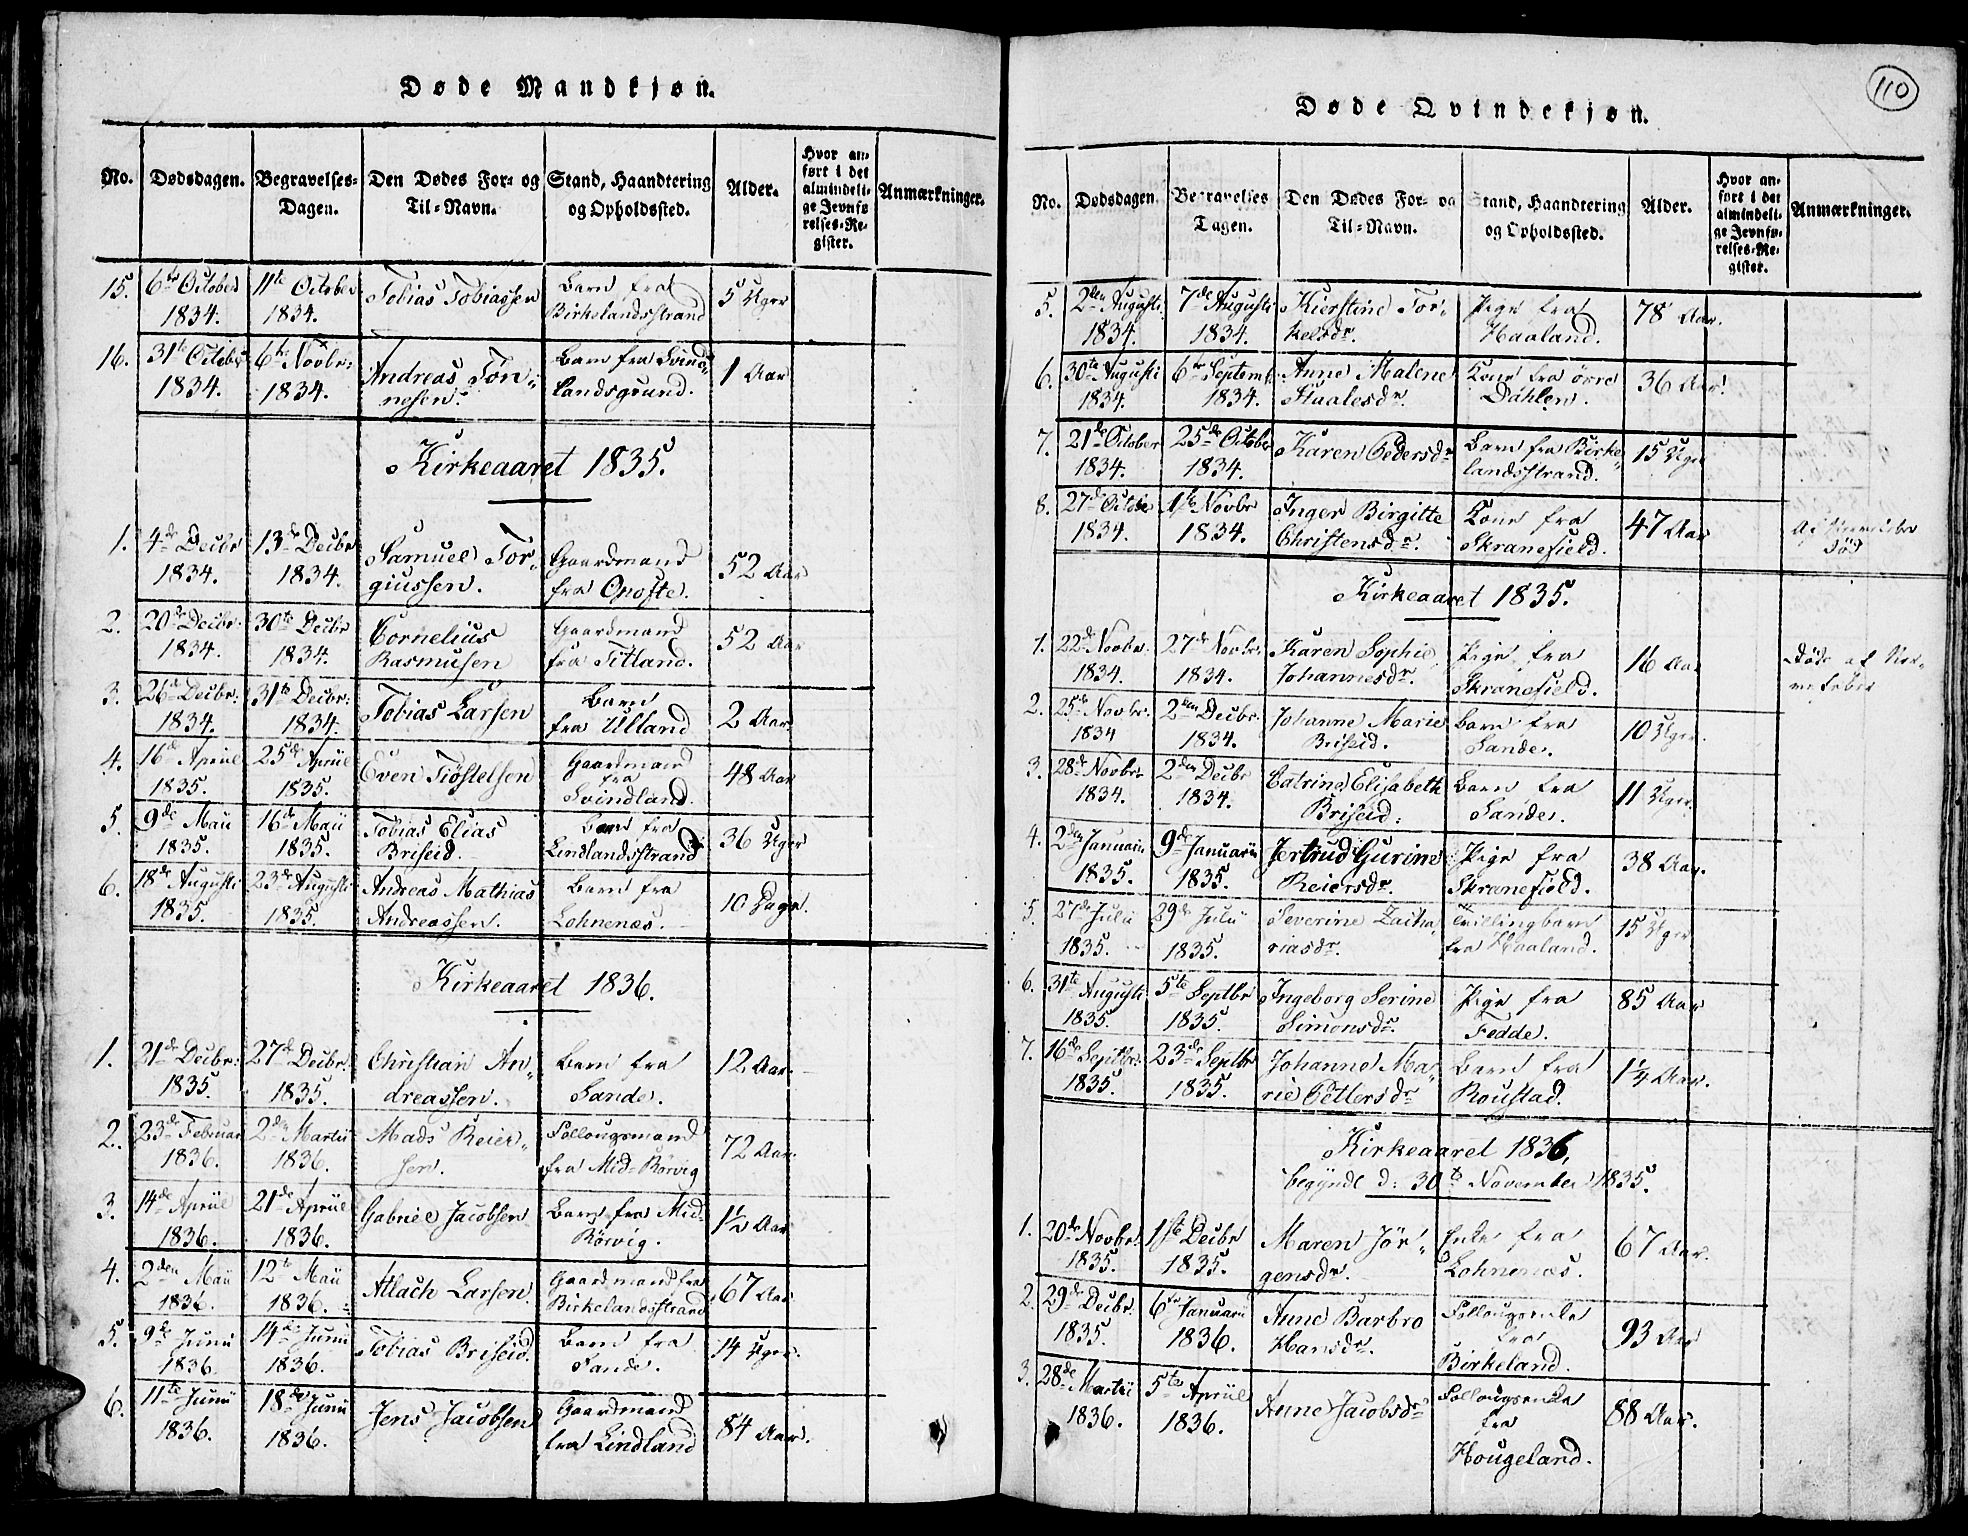 Døde Mandkjøn.
No. Dødsdagen. Begravelses-Dagen. Den Dødes For- og Til-Navn. Stand, Haandtering og Opholdssted. Alder. Hvor anført i det almindelige Jevnførelses-Register. Anmærkninger.
15. 6te October 11te October Tobias Tobiassen Barn fra 5 Uger
1834. 1834. Birkelandsstrand
16. 31te October 6te Novbr: Andreas Tön- Barn fra Svind- 1 Aar
1834. 1834. nesen. landsgrund.
Kirkeaaret 1835.
1. 4de Decbr 13de Decbr Samuel Tor- Gaardmand 52 Aar
1834. 1834. giussen. fra Opofte.
2. 20de Decbr. 30te Decbr Cornelius Gaardmand 52 Aar
1834. 1834. Rasmusen fra Titland.
3. 26de Decbr. 31te Decbr: Tobias Larsen Barn 2 Aar.
1834. 1834. fra Ulland
4. 16de Apriil 25de Apriil Even Tjöstelsen Gaardmand 48 Aar
fra
1835. 1835. Svindland.
5. 9de Maii 16de Maii Tobias Elias Barn fra 36 Uger
1835. 1835. Briseid. Lindlandsstrand
6. 18de Augusti 23de Augusti Andreas Mathias Barn fra 10 Dage.
1835. 1835. Andreassen. Lohnenæs.
Kirkeaaret 1836.
1. 21de Decbr: 27de Decbr. Christian An- Barn fra 12 Aar.
1835. 1835. dreassen. Sande.
2. 23de Februar 2den Martii Mads Reier- Follougsmand 72 Aar.
1836. 1836. sen. fra Mid-Rörvig
3. 14de Apriil 21de Apriil Gabriel Jacobsen Barn fra Mid- 1½ Aar
1836. 1836. Rörvig.
4. 2den Maii 12te Maii Atlach Larsen. Gaardmand fra 67 Aar.
1836. 1836. Birkelandsstrand
5. 9de Junii 14de Junii Tobias Briseid. Barn fra 14 Uger.
1836. 1836. Sande.
6. 11te Junii 18de Junii Jens Jacobsen Gaardmand 84 Aar.
1836. 1836. fra Lindland
110
Døde Qvindekjøn.
No. Dødsdagen. Begravelses Dagen. Den Dødes For- og Til-Navn. Stand, Haandtering og Opholdssted. Alder. Hvor anført i det almindelige Jevnførelses-Register. Anmærkninger.
5. 2den Augusti 7de Augusti Kierstine Tor- Pige fra 78 Aar.
1834. 1834. kelsdr. Haaland.
6. 30te Augusti 6te Septemb Anne Malene Kone fra örre 36 Aar.
1834. 1834. Staalesdr. Dahlen.
7. 21de October 25de October Karen Pedersdr Barn fra Birke- 15 Uger
1834. 1834. landsstrand.
8. 27de Octobr 1ste Novbr Inger Birgitte Kone fra 47 Aar
1834. 1834. Christensdr. Skranefield.
Kirkeaaret 1835.
1. 22de Novbr. 27de Novbr. Karen Sophie Pige fra 16 Aar Döde af Ner-
1834. 1834. Johannesdr. Skranefield. vefeber
2. 25de Novbr. 2den Decbr. Johanne Marie Barn fra 10 Uger.
1834 1834. Briseid. Sande.
3. 28de Novbr. 2den Decbr Catrine Elisabeth Barn fra 11 Uger.
1834. 1834. Briseid. Sande.
4. 2den Januarii 9de Januarii Jertrud Gurine Pige fra 38 Aar.
1835. 1835. Reiersdr. Skranefield.
5. 27de Julii 29de Julii Severine Zacha- Tvillingbarn 15 Uger
1835. 1835. riasdr. fra Haaland.
6. 31te Augusti 5te Septbr Ingeborg Serine Pige fra 85 Aar
1835. 1835. Simonsdr. Fedde.
7. 16de Septbr. 23de Septbr Johanne Ma- Barn fra 1¼ Aar.
1835. 1835. rie Pettersdr Roustad.
Kirkeaaret 1836,
begyndt d: 30te November 1835.
1. 20de Novbr. 1ste Decbr Maren Jör- Enke fra 67 Aar.
1835. 1835. gensdr. Lohnenæs.
2. 29de Decbr. 6te Januarii Anne Barbro Follougsenke 93 Aar
fra
1835. 1836. Hansdr. Birkeland.
3. 28de Martii 5te Apriil Anne Jacobsdr Follougsenke 88 Aar.
fra
1836. 1836. Hougeland.